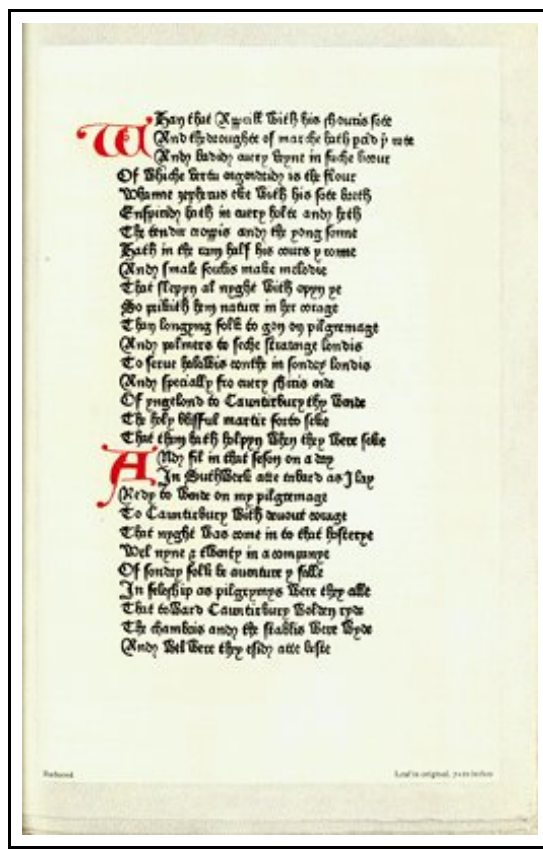 WHan that Apprill with his shouris sote
And the droughte of marche hath percid þe rote
And badid euery veyne in suche licour
Of whiche vertu engendrid is the flour
Whanne zepherus eke with his sote breth
Enspirid hath in euery holte and heth
The tendir croppis and the yong sonne
Hath in the ram half his cours y ronne
And smale foulis make melodie
That slepyn al nyght with opyn ye
So prikith hem nature in her corage
Than longyng folk to gon on pilgremage
And palmers to seche straunge londis
To serue halowis couthe in sondry londis
And specially fro euery shiris ende
Of yngelond to Caunterbury thy wende
The holy blisful martir forto seke
That them hath holpyn when they were seke
ANd fil in that seson on a day
In Suthwerk atte tabard as I lay
Redy to wende on my pilgremage
To Caunterbury with deuout corage
That nyght was come in to that hosterye
Wel nyne & twenty in a companye
Of sondry folk be auenture y falle
In feleship as pilgrymys were they alle
That toward Caunterbury wolden ryde
The chambris and the stablis were wyde
And wel were they esid atte beste
Reduced.
Leaf in original, 7 x 10 inches